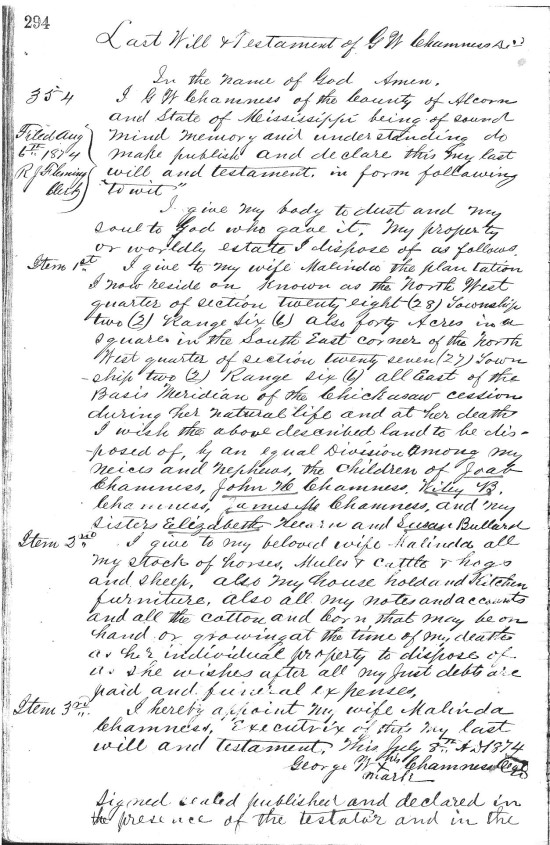 294
Last Will & Testament of G W Chamness Decd
In the name of God Amen.
354
I G W Chamness of the County of Alcorn
and State of Mississippi being of sound
Filed Aug
6th 1874
R J Fleming
Clerk
mind memory and understanding do
make publish and declare this my last
will and testament, in form following
"to wit"
I give my body to dust and my
soul to God who gave it, My property
or worldly estate I dispose of as follows
Item 1st I give to my wife Malinda the plantation
I now reside on known as the North West
quarter of section twenty eight (28) Township
two (2) Range Six (6) also forty Acres in a
square in the South East corner of the North
West quarter of section twenty seven (27) Town
-ship two (2) Range six (6) all East of the
Basis Meridian of the Chickasaw cession
during her natural life and at her death
I wish the above described land to be dis-
posed of, by an equal Division among my
neices and nephews, the children of Joab
Chamness, John H Chamness, Wiley B.
Chamness, James M Chamness, and my
sisters Elizabeth and Susan Bullard
Item 2nd I give to my beloved wife Malinda all
my stock of horses, Mules & Cattle & hogs
and sheep, also my house hold and Kitchen
furniture, also all my notes and accounts
and all the cotton and corn that may be on
hand or growing at the time of my death
as her individual property to dispose of
as she wishes after all my just debts are
paid and funeral expenses,
Item 3rd I hereby appoint my wife Malinda
Chamness, Executrix of this my last
will and testament, This July 8th AD 1874
George W his X mark Chamness Seal
Signed sealed published and declared in
the presence of the testator and in the